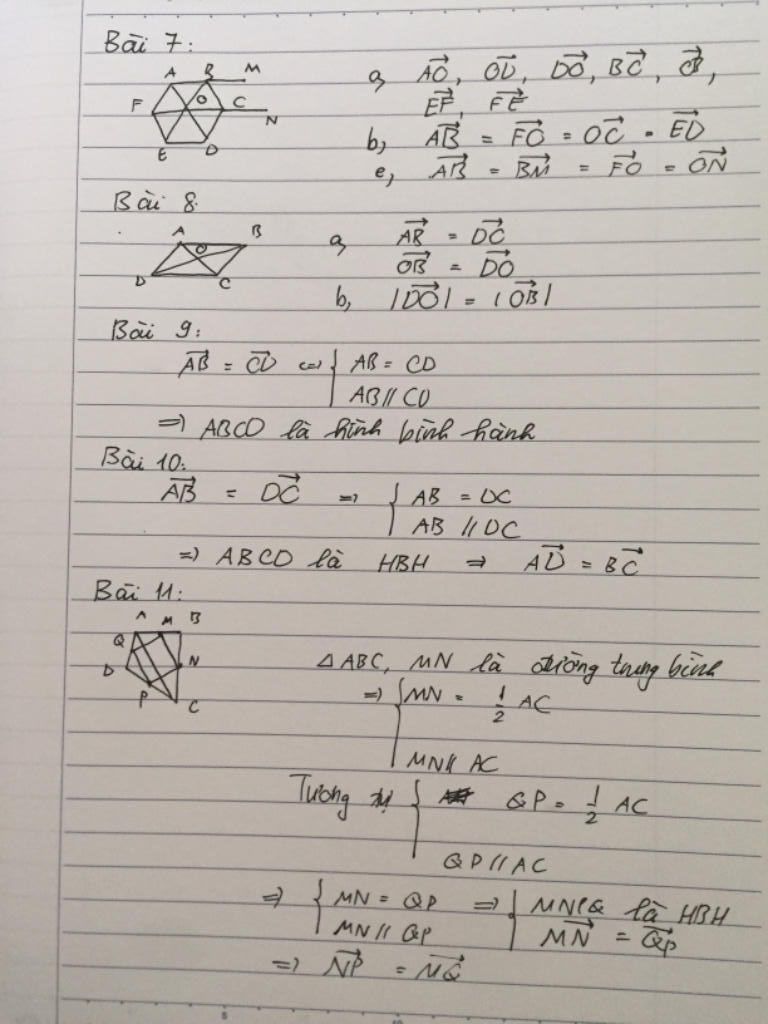 Bài 7:
A B M
F O C N
E D
a, $\overrightarrow{AO}$, $\overrightarrow{OD}$, $\overrightarrow{DO}$, $\overrightarrow{BC}$, $\overrightarrow{CB}$,
$\overrightarrow{EF}$, $\overrightarrow{FE}$
b, $\overrightarrow{AB}$ = $\overrightarrow{FO}$ = $\overrightarrow{OC}$ = $\overrightarrow{ED}$
e, $\overrightarrow{AB}$ = $\overrightarrow{BM}$ = $\overrightarrow{FO}$ = $\overrightarrow{ON}$
Bài 8.
A O B
D C
a, $\overrightarrow{AB}$ = $\overrightarrow{DC}$
$\overrightarrow{OB}$ = $\overrightarrow{DO}$
b, |$\overrightarrow{DO}$| = |$\overrightarrow{OB}$|
Bài 9:
$\overrightarrow{AB}$ = $\overrightarrow{CD}$ <=> { AB = CD
AB // CD
=> ABCD là hình bình hành
Bài 10:
$\overrightarrow{AB}$ = $\overrightarrow{DC}$ => { AB = DC
AB // DC
=> ABCD là HBH => $\overrightarrow{AD}$ = $\overrightarrow{BC}$
Bài 11:
A M B
Q
D N
P C
△ABC, MN là đường trung bình
=> { MN = $\frac{1}{2}$ AC
MN // AC
Tương tự { QP = $\frac{1}{2}$ AC
QP // AC
=> { MN = QP => { MNPQ là HBH
MN // QP $\overrightarrow{MN}$ = $\overrightarrow{QP}$
=> $\overrightarrow{NP}$ = $\overrightarrow{MQ}$